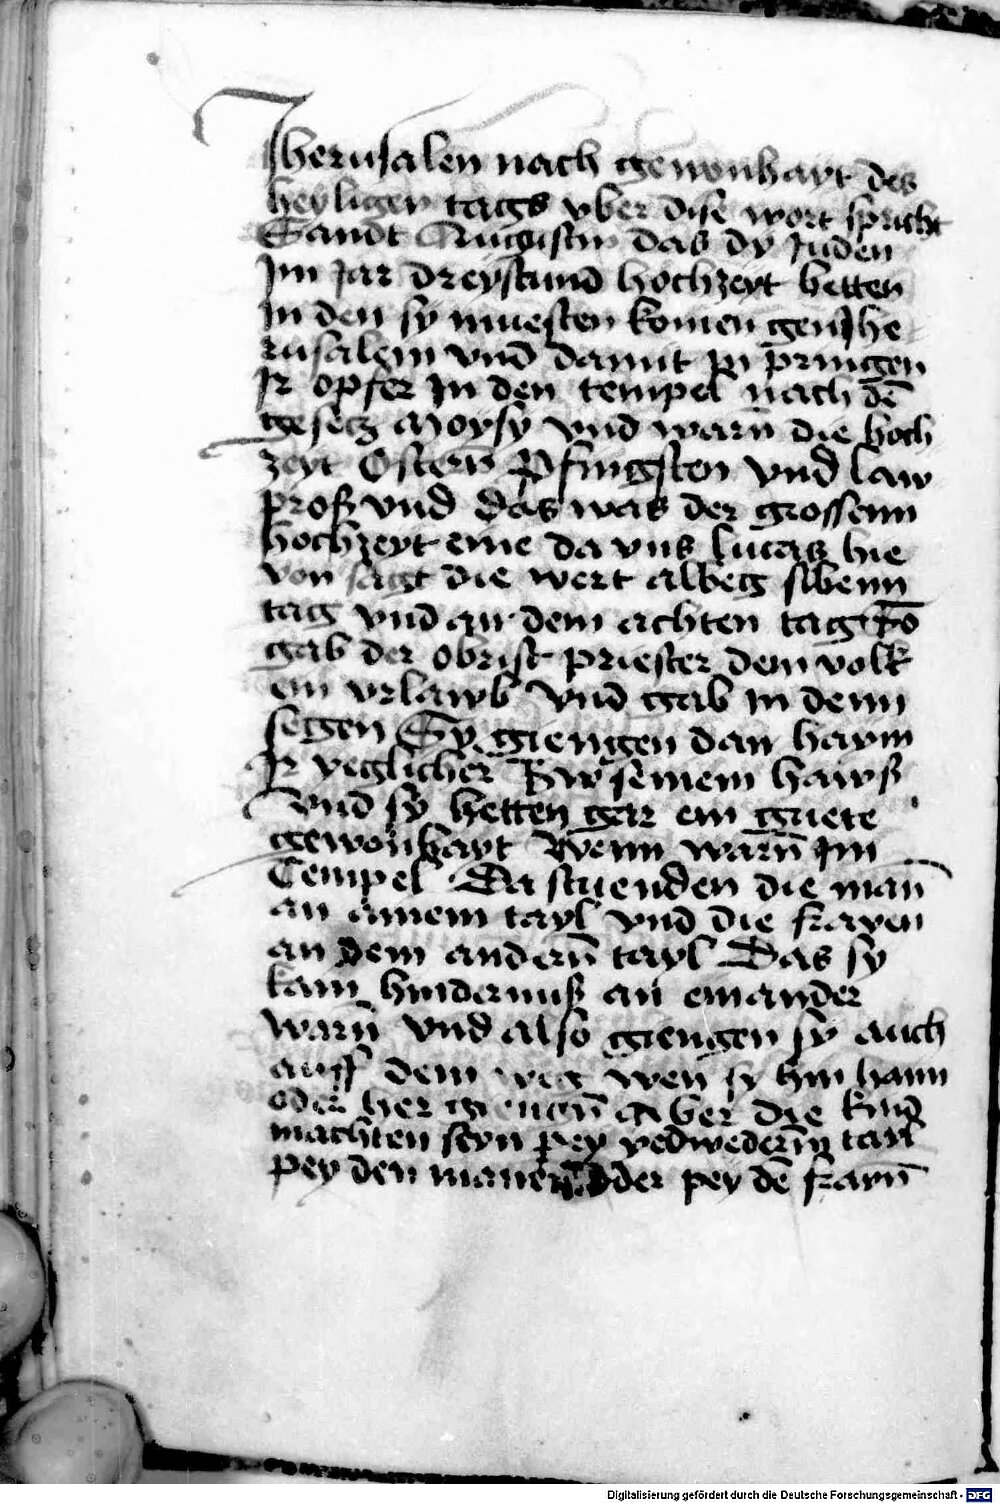 Jherusalen nach gewonhayt des
heyligen tags vber dise wort spricht
Sandt Augustin das dy Juden
Im Jar dreystund hochzeyt hetten
In den sy muesten komen gen Jhe
rusalem vnd damit zu pringen
Ir opfer In den tempel nach dē
gesetz Moysy vnd warn̄ die hoch
zeyt Ostern Pfingsten vnd law
proß vnd das was der grossenn
hochzeyt eine da vns lucas hie
von sagt die wert albeg sibenn
tag vnd an dem achten tag so
gab der obrist priester dem volk
ein vrlawb vnd gab in denn
segen Sy giengen dan haym
Ir yeglicher zw seinem hawß
vnd sy hetten gar ein guete
gewonhayt Wenn warn̄ Im
Tempel Da stuenden die man̄
an ainem tayl vnd die frawen
an dem andern̄ tayl Das sy
kain hindernuß an einander
warn̄ vnd also giengen sy auch
auff dem weg wen sy hin hann
oder her giengn̄ Aber die kind
machten seyn pey yedwederm tayl
pey den manen oder pey dē frawn̄
Digitalisierung gefördert durch die Deutsche Forschungsgemeinschaft - DFG